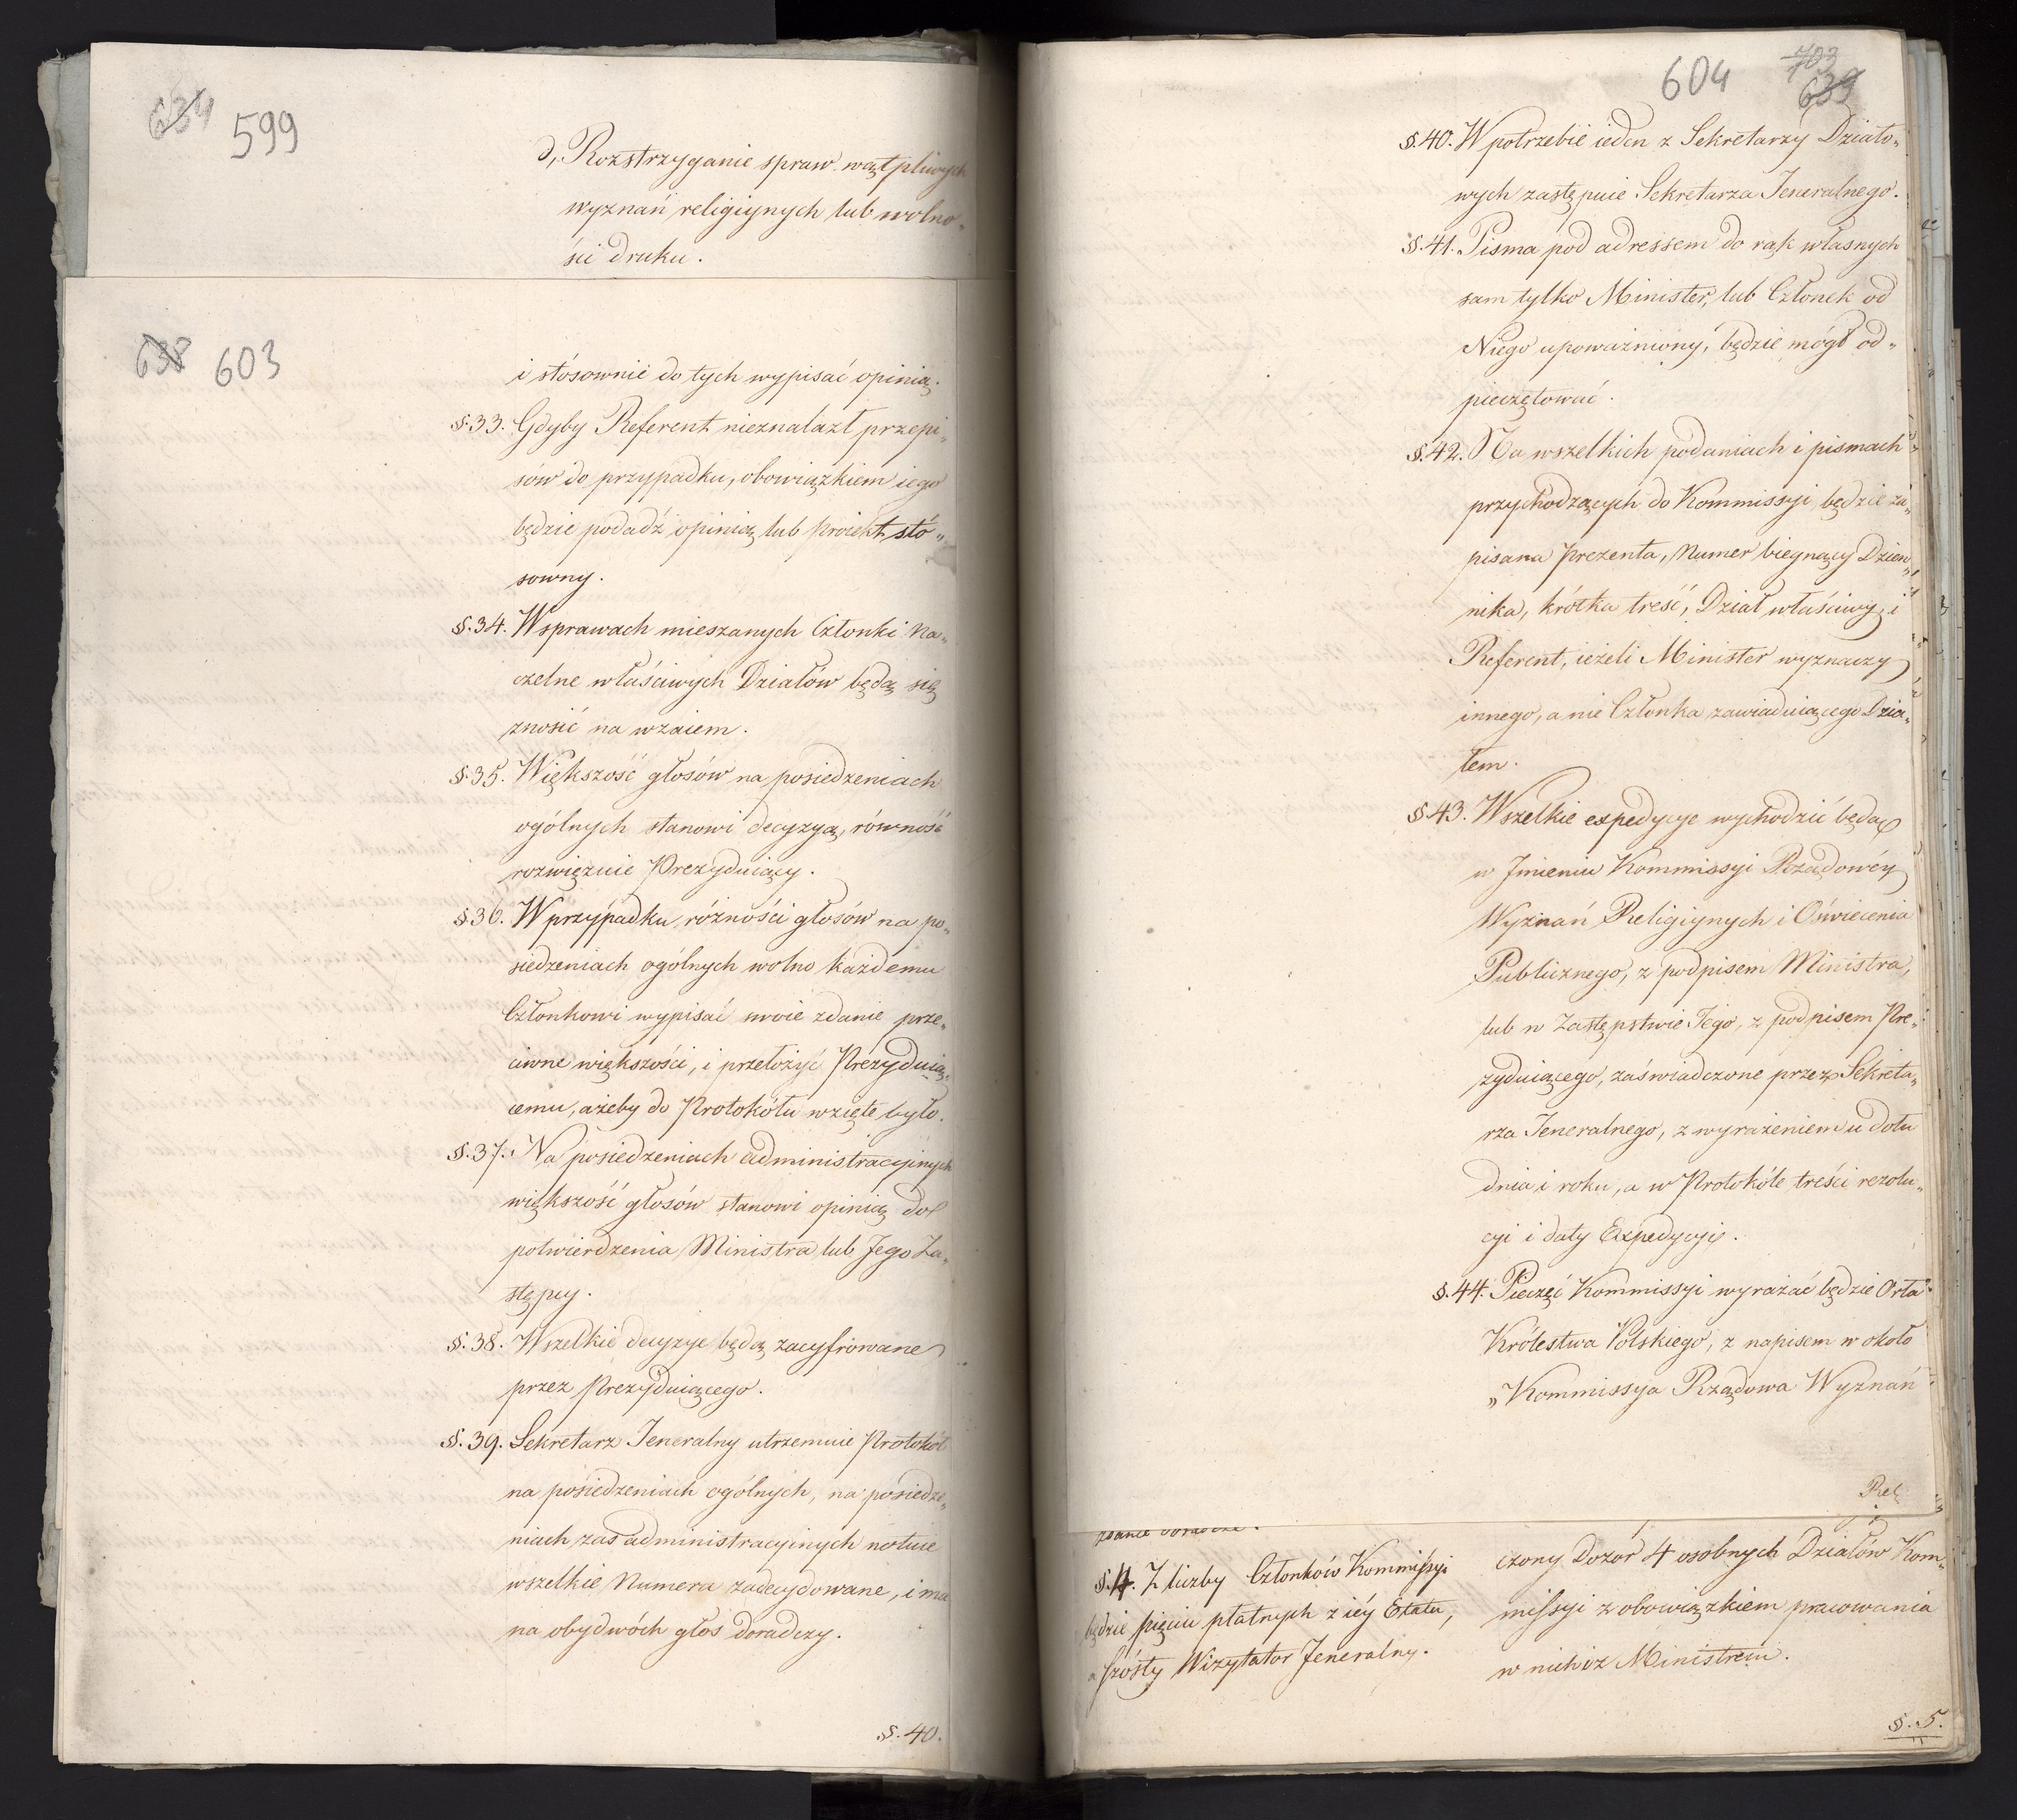 634 599
d, Rozstrzyganie spraw wątpliwych
wyznań religiynych lub wolno„
ści druku.
638 603
i stósownie do tych wypisać opinią.
§.33. Gdyby Referent nieznalazł przepi„
sów do przypadku, obowiązkiem iego
będzie podadź opinią lub proiekt stó„
sowny.
§.34. W sprawach mieszanych Członki Na„
czelne właściwych Działów będą się
znosić na wzaiem.
§.35. Większość głosów na posiedzeniach
ogólnych stanowi decyzyą, równość
rozwięzuie Prezyduiący.
§.36. W przypadku różności głosów na po„
siedzeniach ogólnych wolno każdemu
Członkowi wypisać swoie zdanie prze„
ciwne większości, i przełożyć Prezyduią„
cemu, ażeby do Protokółu wzięte było.
§.37. Na posiedzeniach administracyinych
większość głosów stanowi opinią do
potwierdzenia Ministra lub Jego Za„
stępcy.
§.38. Wszelkie decyzye będą zacyfrowane
przez Prezyduiącego.
§.39. Sekretarz Jeneralny utrzemuie Protokół
na posiedzeniach ogólnych, na posiedze„
niach zaś administracyinych notuie
wszelkie Numera zadecydowane, i ma
na obydwóch głos doradczy.
§.40.
604 703
639
§.40. W potrzebie ieden z Sekretarzy Działo„
wych zastępuie Sekretarza Jeneralnego.
§.41. Pisma pod adressem do rąk własnych
sam tylko Minister, lub Członek od
Niego upoważniony, będzie mógł od„
pieczętować.
§.42. Na wszelkich podaniach i pismach
przychodzących do Kommissyi, będzie za„
pisana Prezenta, Numer biegnący Dzien„
nika, krótka treść, Dział właściwy, i
Referent, ieżeli Minister wyznaczy
innego, a nie Członka zawiaduiącego Dzia„
łem.
§.43. Wszelkie expedycye wychodzić będą
w Jmieniu Kommissyi Rządowéy
Wyznań Religiynych i Oświecenia
Publicznego, z podpisem Ministra,
lub w Zastępstwie Jego, z podpisem Pre„
zyduiącego, zaświadczone przez Sekreta„
rza Jeneralnego, z wyrażeniem u dołu
dnia i roku, a w Protokóle treści rezolu„
cyi i daty Expedycyi.
§.44. Pieczęć Kommissyi wyrażać będzie Orła
Królestwa Polskiego, z napisem w około
„Kommissya Rządowa Wyznań
Rel
zdanie doradcze.
§.4. Z liczby Członków Kommissyi
będzie pięciu płatnych z iéy Etatu,
a szósty Wizytator Jeneralny.
czony Dozór 4 osobnych Działów Kom„
missyi z obowiązkiem pracowania
w nich z Ministrem.
§.5.